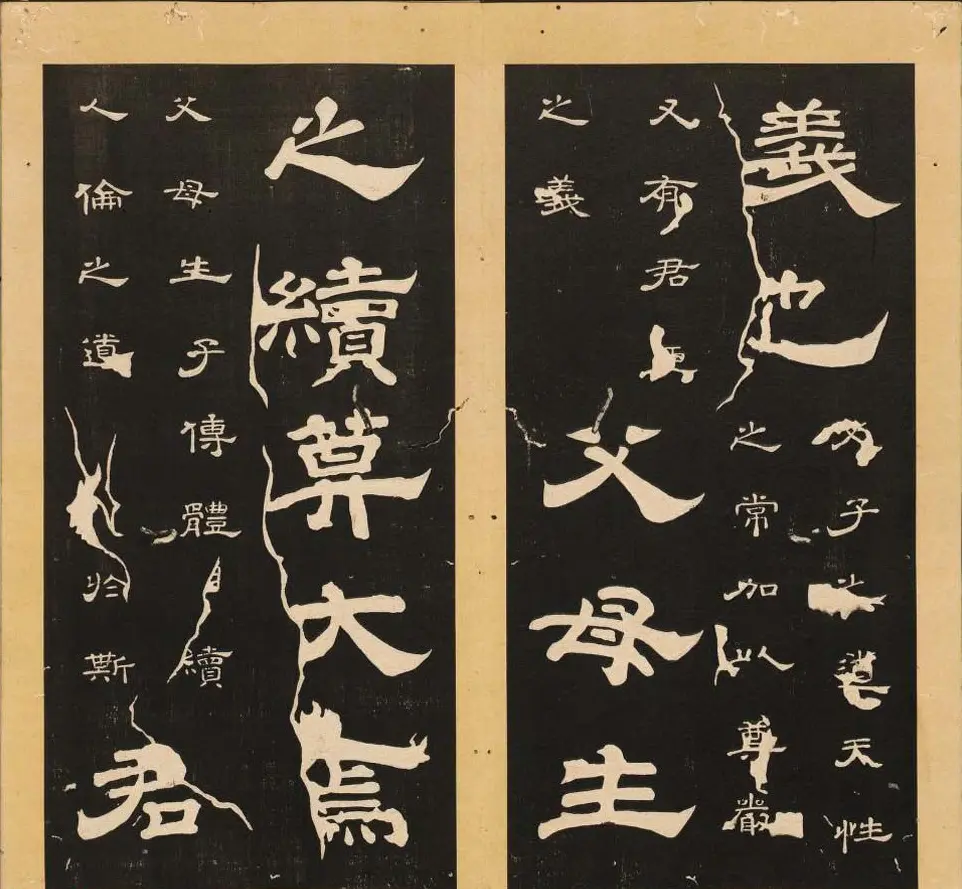 義也
父子之道天性
之常加以尊嚴
又有君臣
之義
父母生
之續莫大焉
父母生子傳體續
人倫之道於斯
君